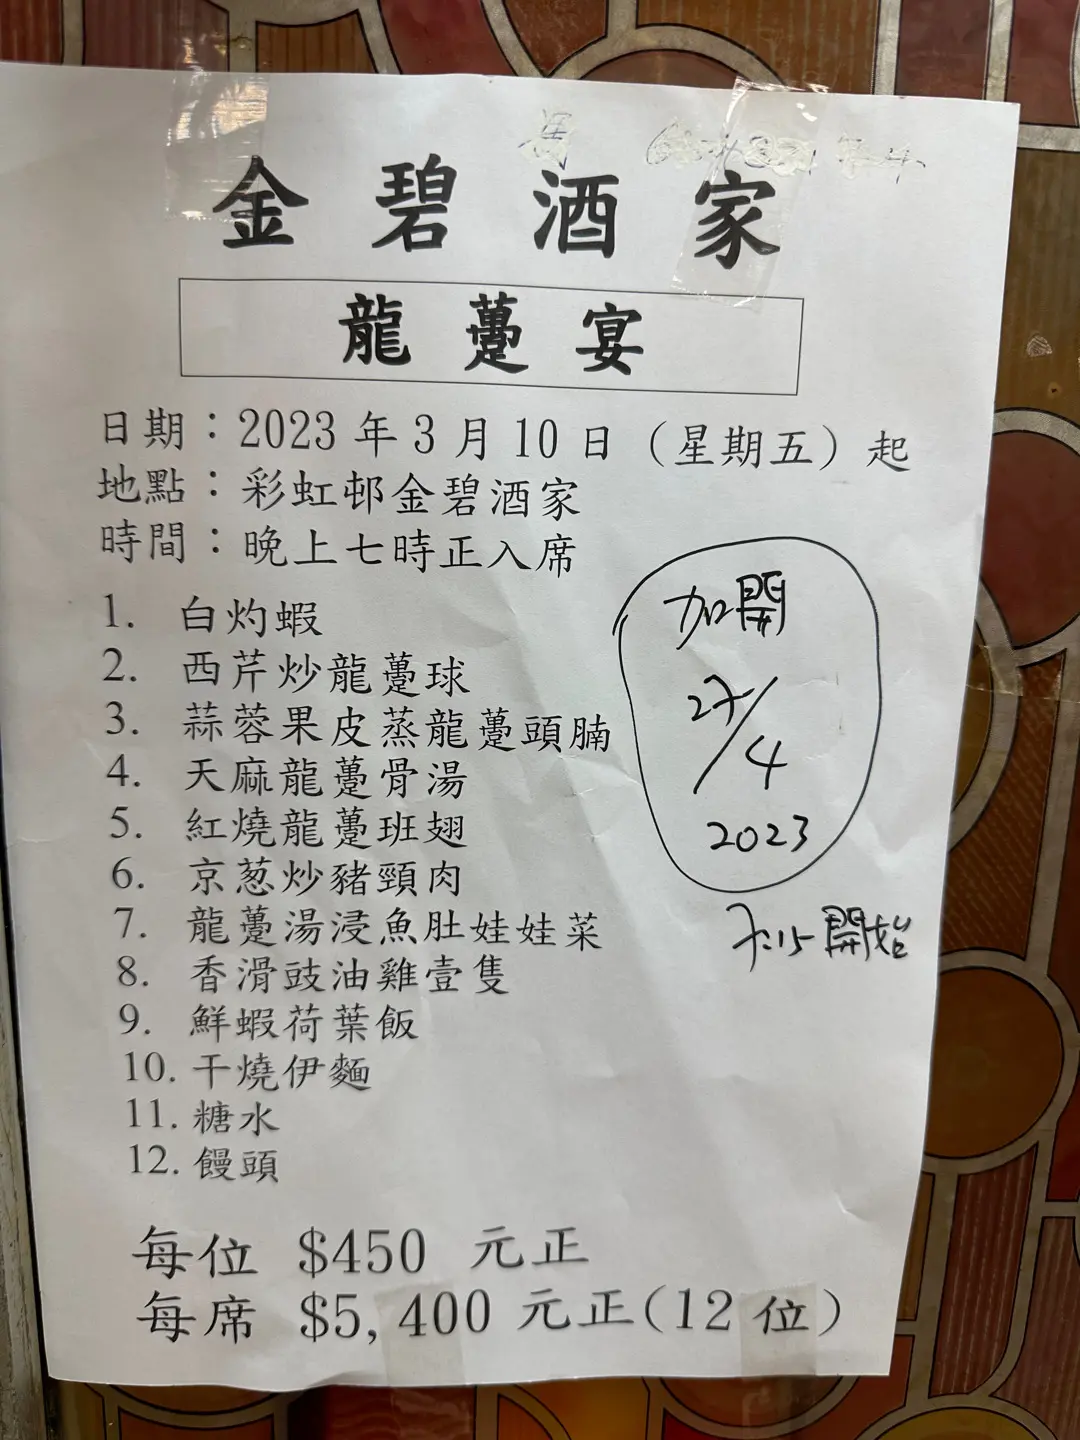 金碧酒家
龍躉宴
日期：2023年3月10日（星期五）起
地點：彩虹邨金碧酒家
時間：晚上七時正入席
1. 白灼蝦
2. 西芹炒龍躉球
3. 蒜蓉果皮蒸龍躉頭腩
4. 天麻龍躉骨湯
5. 紅燒龍躉班翅
6. 京葱炒豬頸肉
7. 龍躉湯浸魚肚娃娃菜
8. 香滑豉油雞壹隻
9. 鮮蝦荷葉飯
10. 干燒伊麵
11. 糖水
12. 饅頭
加開
27/4
2023
7:15開始
每位 $450 元正
每席 $5,400 元正(12位)